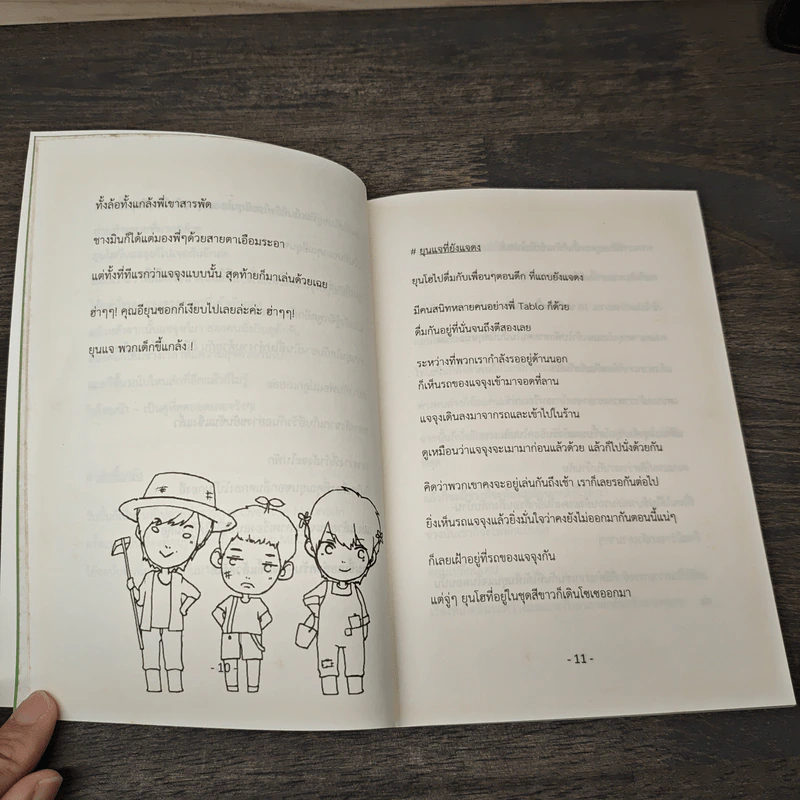 ทั้งล้อทั้งแกล้งพี่เขาสารพัด
ชางมินก็ได้แต่มองพี่ๆด้วยสายตาเอือมระอา
แต่ทั้งที่ทีแรกว่าแจจุงแบบนั้น สุดท้ายก็มาเล่นด้วยเฉย
ฮ่าๆๆ! คุณอียุนซอกก็เงียบไปเลยล่ะค่ะ ฮ่าๆๆ!
ยุนแจ พวกเด็กขี้แกล้ง !
- 10 -
# ยุนแจที่ยังแจดง
ยุนโฮไปดื่มกับเพื่อนๆตอนดึก ที่แถบยังแจดง
มีคนสนิทหลายคนอย่างพี่ Tablo ก็ด้วย
ดื่มกันอยู่ที่นั่นจนถึงตีสองเลย
ระหว่างที่พวกเรากำลังรออยู่ด้านนอก
ก็เห็นรถของแจจุงเข้ามาจอดที่ลาน
แจจุงเดินลงมาจากรถและเข้าไปในร้าน
ดูเหมือนว่าแจจุงจะเมามาก่อนแล้วด้วย แล้วก็ไปนั่งด้วยกัน
คิดว่าพวกเขาคงจะอยู่เล่นกันถึงเช้า เราก็เลยรอกันต่อไป
ยิ่งเห็นรถแจจุงแล้วยิ่งมั่นใจว่าคงยังไม่ออกมากันตอนนี้แน่ๆ
ก็เลยเฝ้าอยู่ที่รถของแจจุงกัน
แต่จู่ๆ ยุนโฮที่อยู่ในชุดสีขาวก็เดินโซเซออกมา
- 11 -